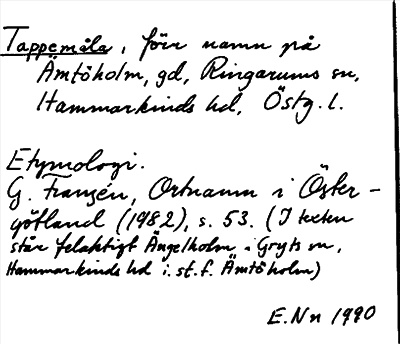 Tappemåla, förr namn på
Ämtöholm, gd, Ringarums sn,
Hammarkinds hd, Östg. l.
Etymologi.
G. Franzén, Ortnamn i Öster-
götland (1982), s. 53. (I texten
står felaktigt Ängelholm i Gryts sn,
Hammarkinds hd i. st. f. Ämtöholm)
E. Nn 1990